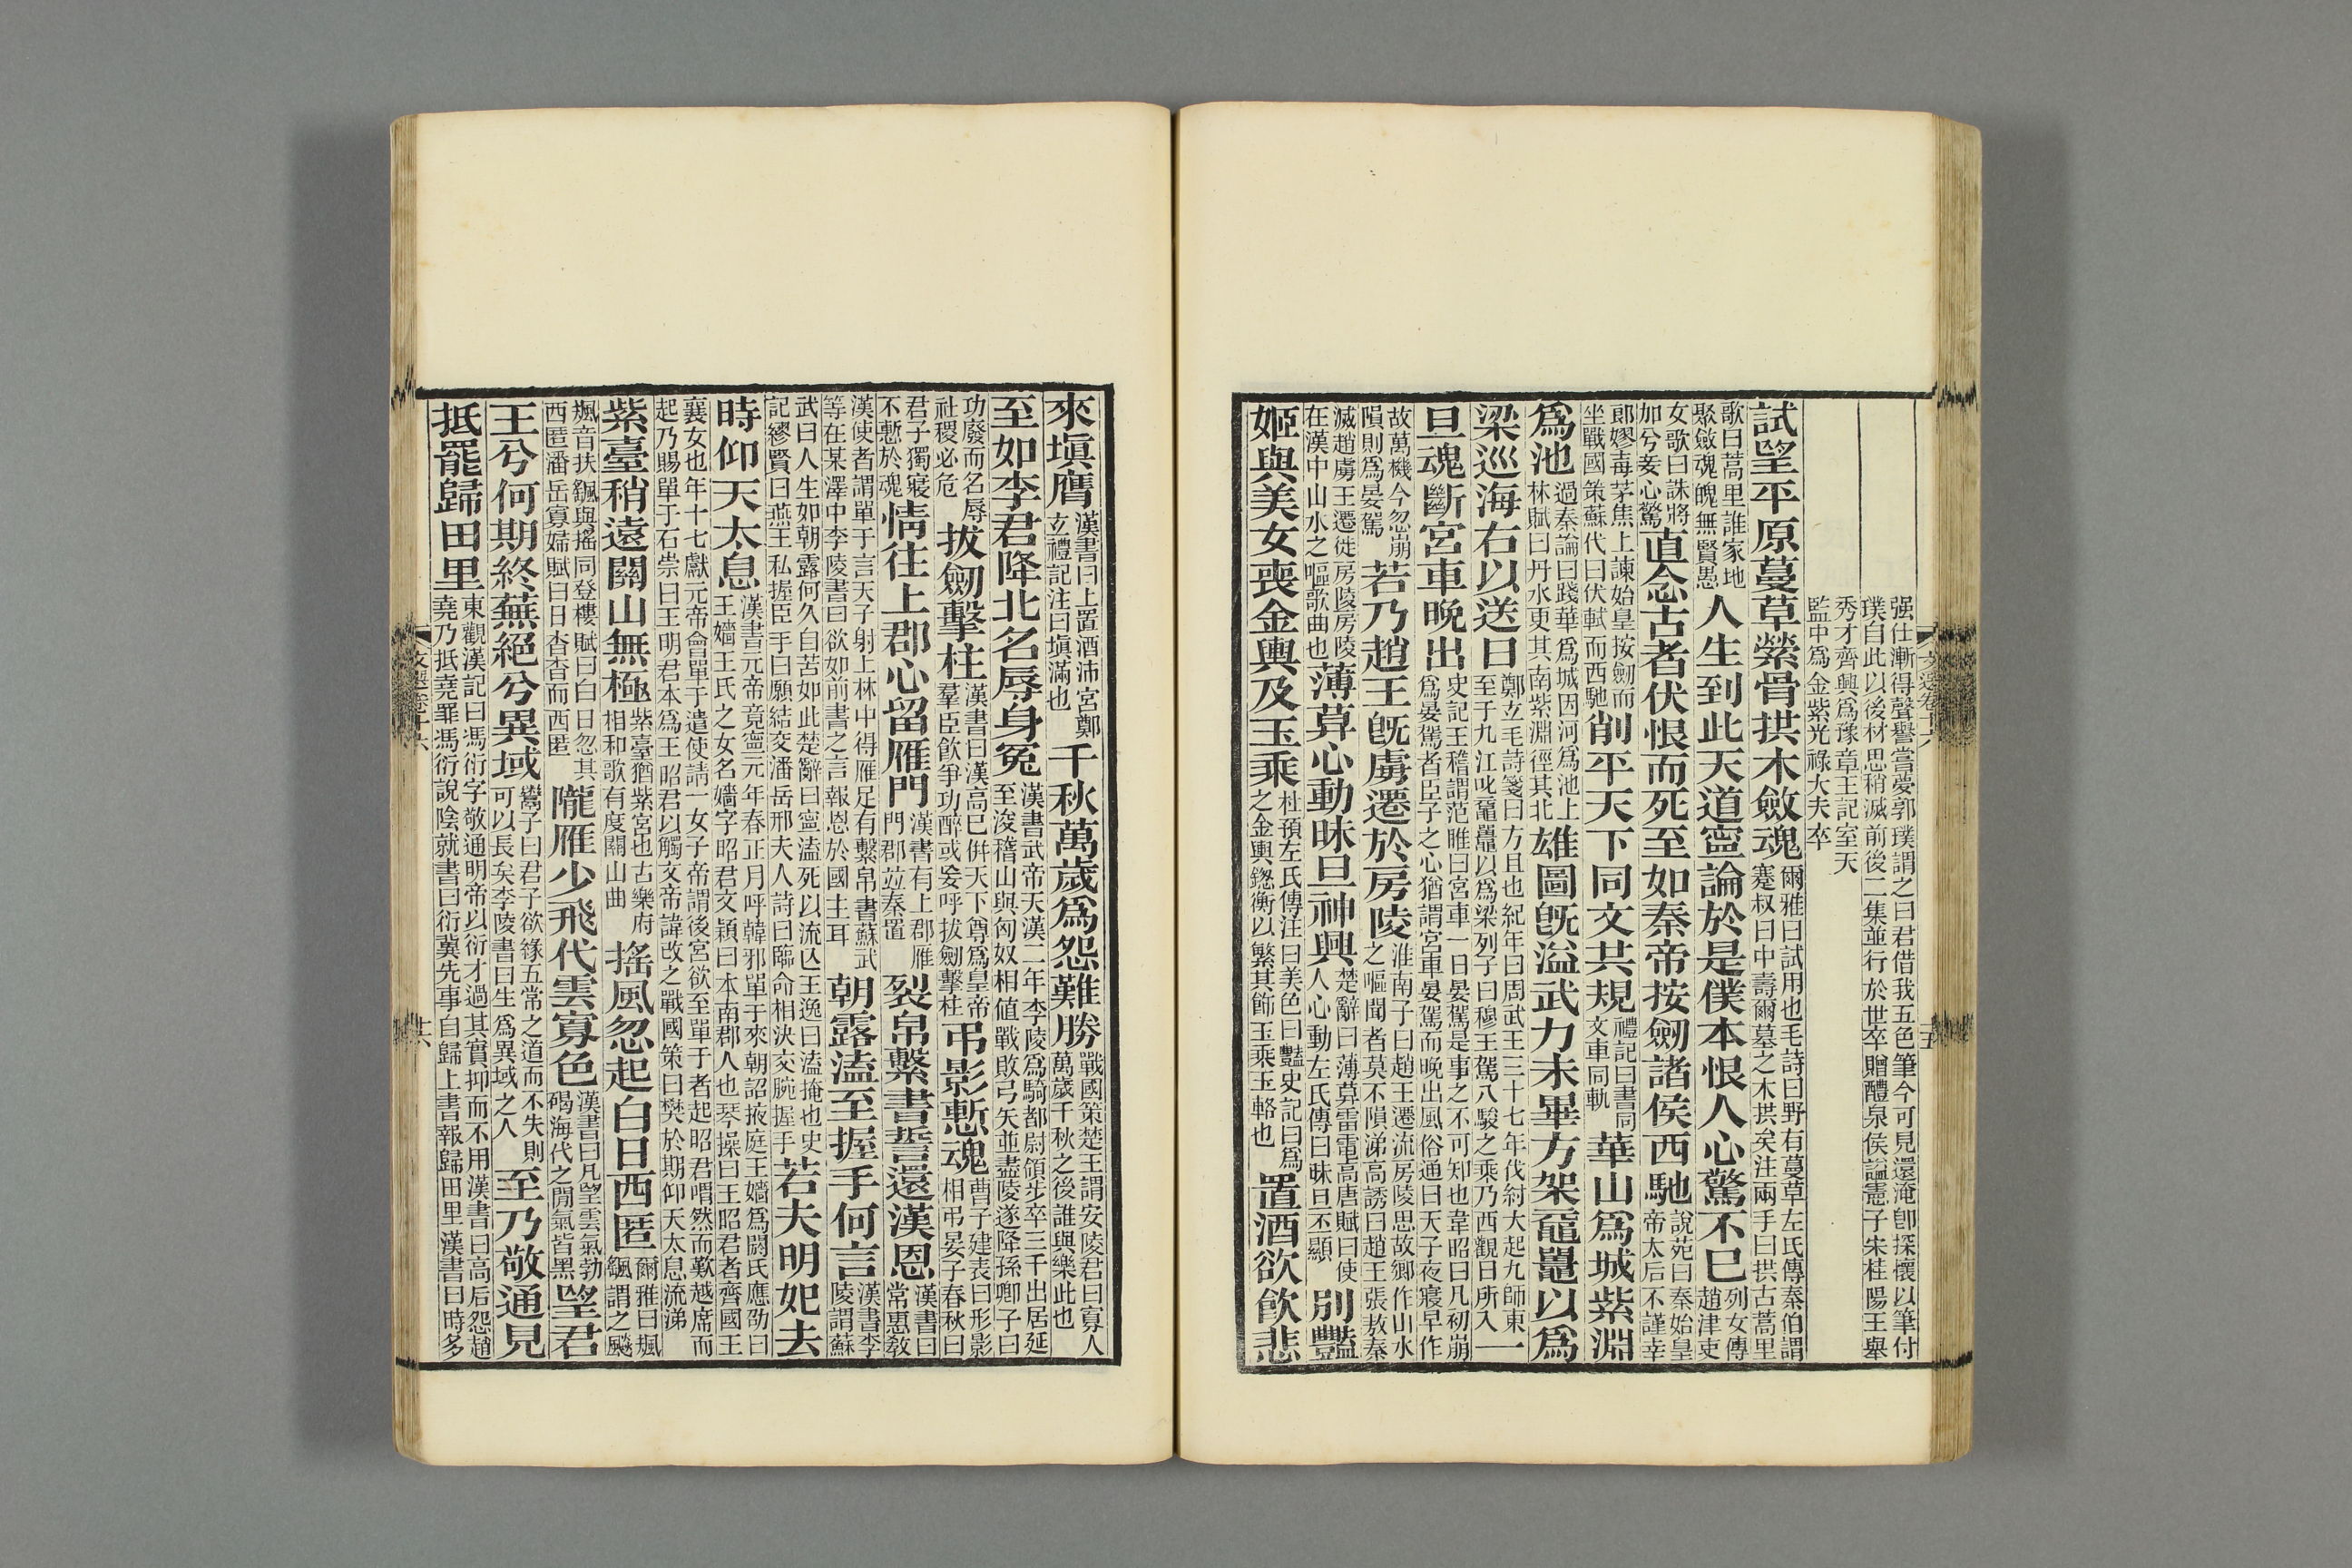 强仕漸得聲譽嘗夢郭璞謂之曰君借我五色筆今可見還淹卽探懷以筆付
璞自此以後材思稍減前後二集並行於世卒贈醴泉侯謚憲子朱桂陽王舉
秀才齊興爲豫章王記室天
監中爲金紫光祿大夫卒
試望平原蔓草縈骨拱木斂魂爾雅曰試用也毛詩曰野有蔓草左氏傳秦伯謂蹇叔曰中壽爾墓之木拱矣注兩手曰拱古蒿里
歌曰蒿里誰家地聚斂魂魄無賢愚人生到此天道寧論於是僕本恨人心驚不已列女傳趙津吏
女歌曰誅將加兮妾心驚直念古者伏恨而死至如秦帝按劒諸侯西馳說苑曰秦始皇帝太后不謹幸
郎嫪毐茅焦上諫始皇按劒而坐戰國策蘇代曰伏軾而西馳削平天下同文共規禮記曰書同文車同軌華山爲城紫淵
爲池過秦論曰踐華爲城因河爲池上林賦曰丹水更其南紫淵徑其北雄圖旣溢武力未畢方架黿鼉以爲
梁巡海右以送日鄭玄毛詩箋曰方且也紀年曰周武王三十七年伐紂大起九師東至于九江叱黿鼉以爲梁列子曰穆王駕八駿之乘乃西觀日所入一
旦魂斷宮車晚出史記王稽謂范睢曰宮車一日晏駕是事之不可知也韋昭曰凡初崩爲晏駕者臣子之心猶謂宮車晏駕而晚出風俗通曰天子夜寢早作
故萬機今忽崩隕則爲晏駕若乃趙王旣虜遷於房陵淮南子曰趙王遷流房陵思故鄉作山水之嘔聞者莫不隕涕高誘曰趙王張敖秦
滅趙虜王遷徙房陵房陵在漢中山水之嘔歌曲也薄暮心動昧旦神興楚辭曰薄暮雷電高唐賦曰使人心動左氏傳曰昧旦丕顯別豔
姬與美女喪金輿及玉乘杜預左氏傳注曰美色曰豔史記曰爲之金輿鏓衡以繁其飾玉乘玉輅也置酒欲飲悲
來塡膺漢書曰上置酒沛宮鄭玄禮記注曰塡滿也千秋萬歲爲怨難勝戰國策楚王謂安陵君曰寡人萬歲千秋之後誰與樂此也
至如李君降北名辱身冤漢書武帝天漢二年李陵爲騎都尉領步卒三千出居延至浚稽山與匈奴相值戰敗弓矢並盡陵遂降孫卿子曰
功廢而名辱社稷必危拔劒擊柱漢書曰漢高已併天下尊爲皇帝羣臣飲爭功醉或妄呼拔劒擊柱弔影慙魂曹子建表曰形影相弔晏子春秋曰
君子獨寢不慙於魂情往上郡心留雁門漢書有上郡雁門郡並秦置裂帛繫書誓還漢恩漢書曰常惠敎
漢使者謂單于言天子射上林中得雁足有繫帛書蘇武等在某澤中李陵書曰欲如前書之言報恩於國主耳朝露溘至握手何言漢書李陵謂蘇
武曰人生如朝露何久自苦如此楚辭曰寧溘死以流亾王逸曰溘掩也史記繆賢曰燕王私握臣手曰願結交潘岳邢夫人詩曰臨命相決交腕握手若夫明妃去
時仰天太息漢書元帝竟寧元年春正月呼韓邪單于來朝詔掖庭王嬙爲閼氏應劭曰王嬙王氏之女名嬙字昭君文穎曰本南郡人也琴操曰王昭君者齊國王
襄女也年十七獻元帝會單于遣使請一女子帝謂後宮欲至單于者起昭君喟然而歎越席而起乃賜單于石崇曰王明君本爲王昭君以觸文帝諱改之戰國策曰樊於期仰天太息流涕
紫臺稍遠關山無極紫臺猶紫宮也古樂府相和歌有度關山曲搖風忽起白日西匿爾雅曰颻颻謂之飈
颻音扶颻與搖同登樓賦曰白日忽其西匿潘岳寡婦賦曰日杳杳而西匿隴雁少飛代雲寡色漢書曰凡望雲氣勃碣海代之閒氣皆黑望君
王兮何期終蕪絕兮異域鬻子曰君子欲緣五常之道而不失則可以長矣李陵書曰生爲異域之人至乃敬通見
抵罷歸田里東觀漢記曰馮衍字敬通明帝以衍才過其實抑而不用漢書曰高后怨趙堯乃抵堯罪馮衍說陰就書曰衍冀先事自歸上書報歸田里漢書曰時多